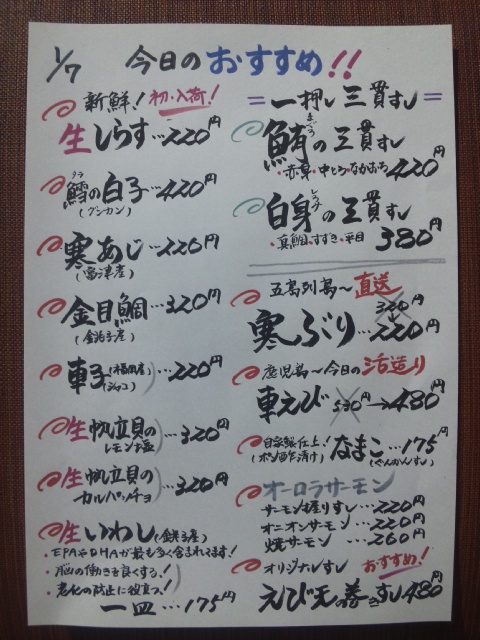 1/7 今日のおすすめ!!
新鮮!初・入荷!
生しらす…220円
鱈の白子…420円
タラ
(グンカン)
寒あじ…220円
(富津産)
金目鯛…320円
(銚子産)
車子…220円
(ジャコ)
生帆立貝の…320円
レモン塩
生帆立貝の…320円
カルパッチョ
生いわし(銚子産)
・EPAやDHAが最も多く含まれてます!
・脳の働きを良くする!
・老化の防止に役立つ!
一皿…175円
=一押し三貫すし=
まぐろ
鮪の三貫すし
・赤身・中とろ・なかおち 420円
しろみ
白身の三貫すし
・真鯛・すずき・平目 380円
五島列島〜直送
320円
寒ぶり…220円
鹿児島〜今日の活造り
車えび 530→480円
自家製仕上!
(ポン酢漬け)
なまこ…175円
(ぐんかんすし)
オーロラサーモン
サーモン握りすし…220円
オニオンサーモン…220円
焼サーモン…260円
オリジナルすし おすすめ!
えび天の巻きすし480円